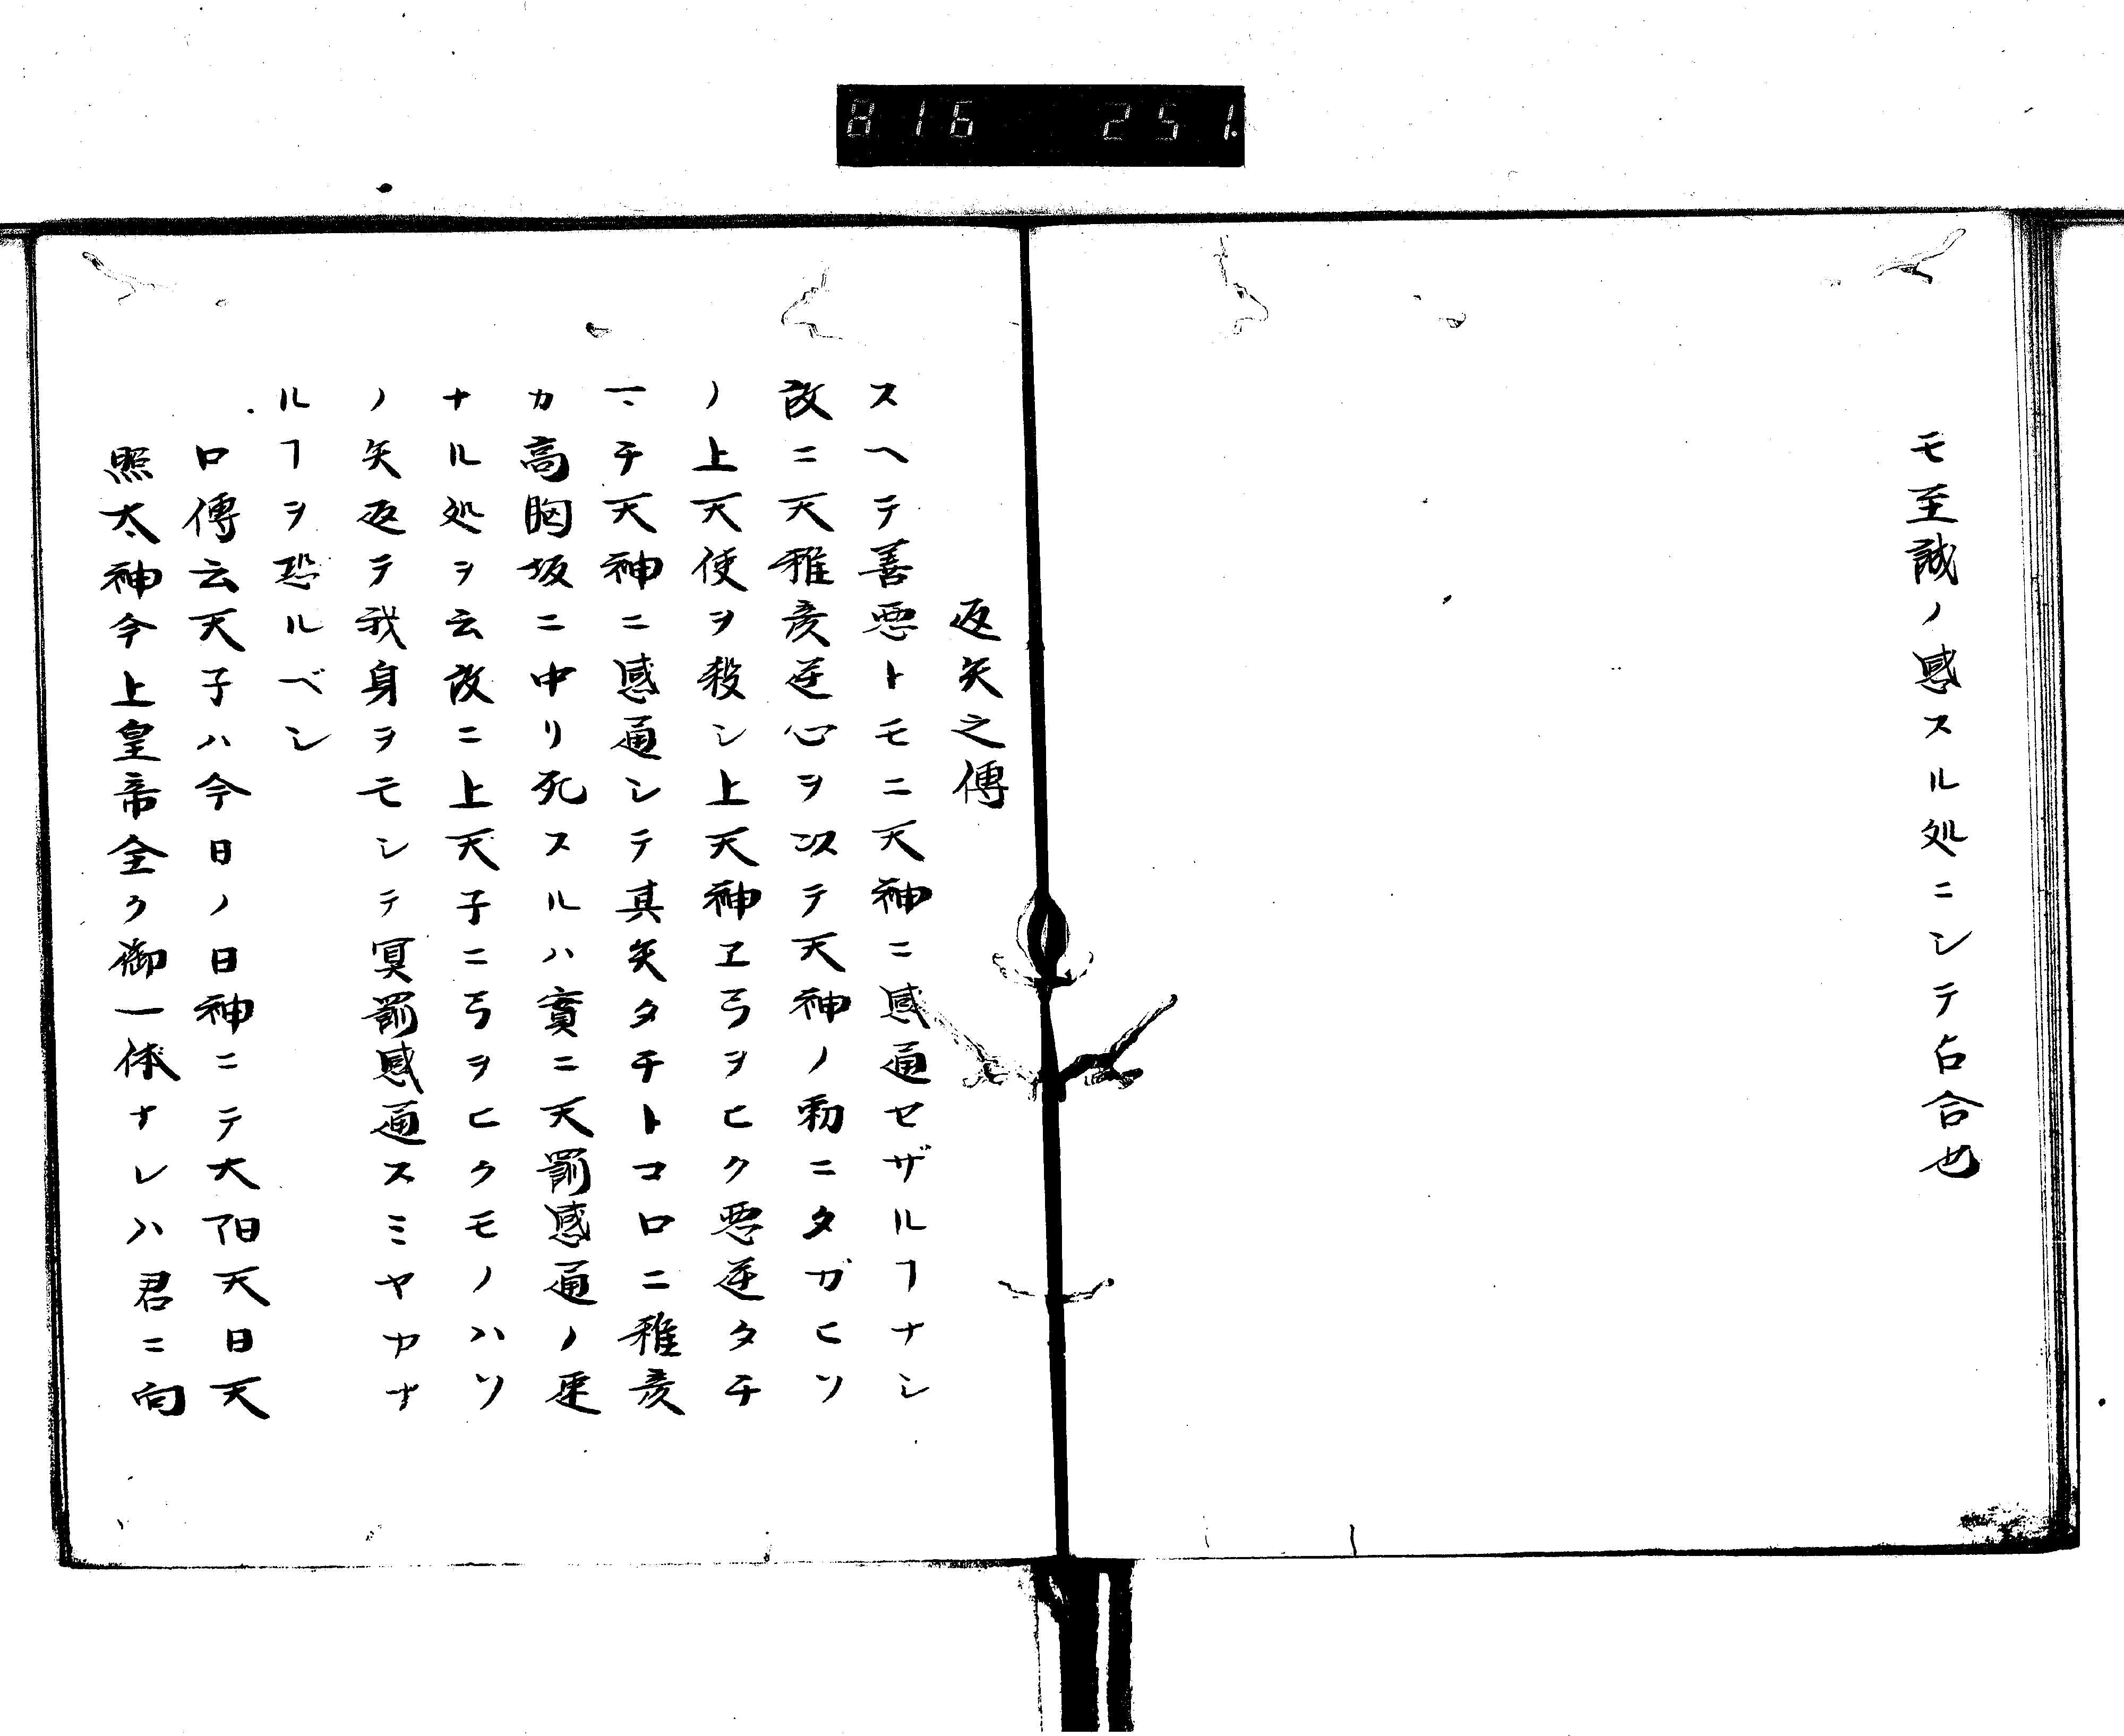 816 251.
モ至誠ノ感スル処ニシテ占合也
返矢之傳
スヘテ善悪トモニ天神ニ感通セザルヿナシ
故ニ天稚彦逆心ヲ以テ天神ノ勅ニタガヒソ
ノ上天使ヲ殺シ上天神ヱ弓ヲヒク悪逆タチ
マチ天神ニ感通シテ其矢タチトコロニ稚彦
カ高胸坂ニ中リ死スルハ實ニ天罰感通ノ速
ナル処ヲ云故ニ上天子ニ弓ヲヒクモノハソ
ノ矢返テ我身ヲモシテ冥罰感通スミヤカナ
ルヿヲ恐ルベシ
口傳云天子ハ今日ノ日神ニテ大阳天日天
照太神今上皇帝全ク御一体ナレハ君ニ向